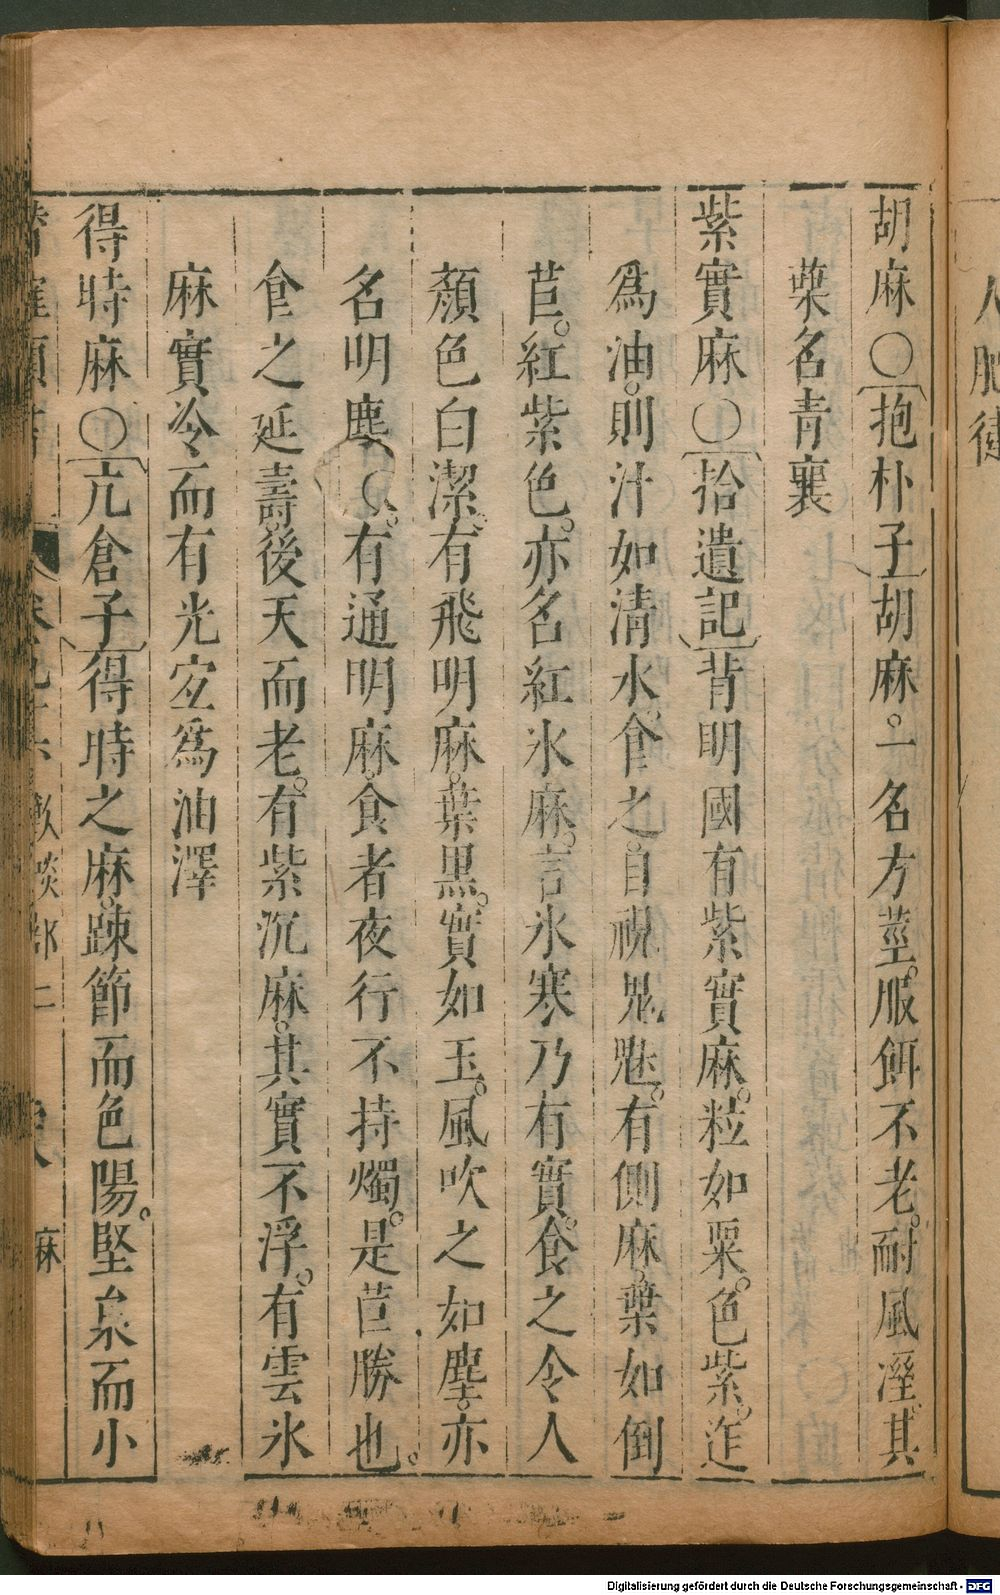 胡麻〇抱朴子胡麻。一名方莖。服餌不老。耐風溼。其
葉名青蘘
紫實麻〇拾遺記背明國有紫實麻。粒如粟。色紫。迮
爲油。則汁如清水。食之。自視鬼魅。有側麻。葉如倒
苣。紅紫色。亦名紅氷麻。言氷寒乃有實。食之令人
顏色白潔。有飛明麻。葉黒。實如玉。風吹之如塵。亦
名明塵。有通明麻。食者夜行不持燭。是苣勝也。
食之延壽。後天而老。有紫沉麻。其實不浮。有雲氷
麻實冷而有光宐爲油澤
得時麻〇亢倉子得時之麻。踈節而色陽。堅枲而小
歠啖部二
麻
人肥徤
Digitalisierung gefördert durch die Deutsche Forschungsgemeinschaft - DFG